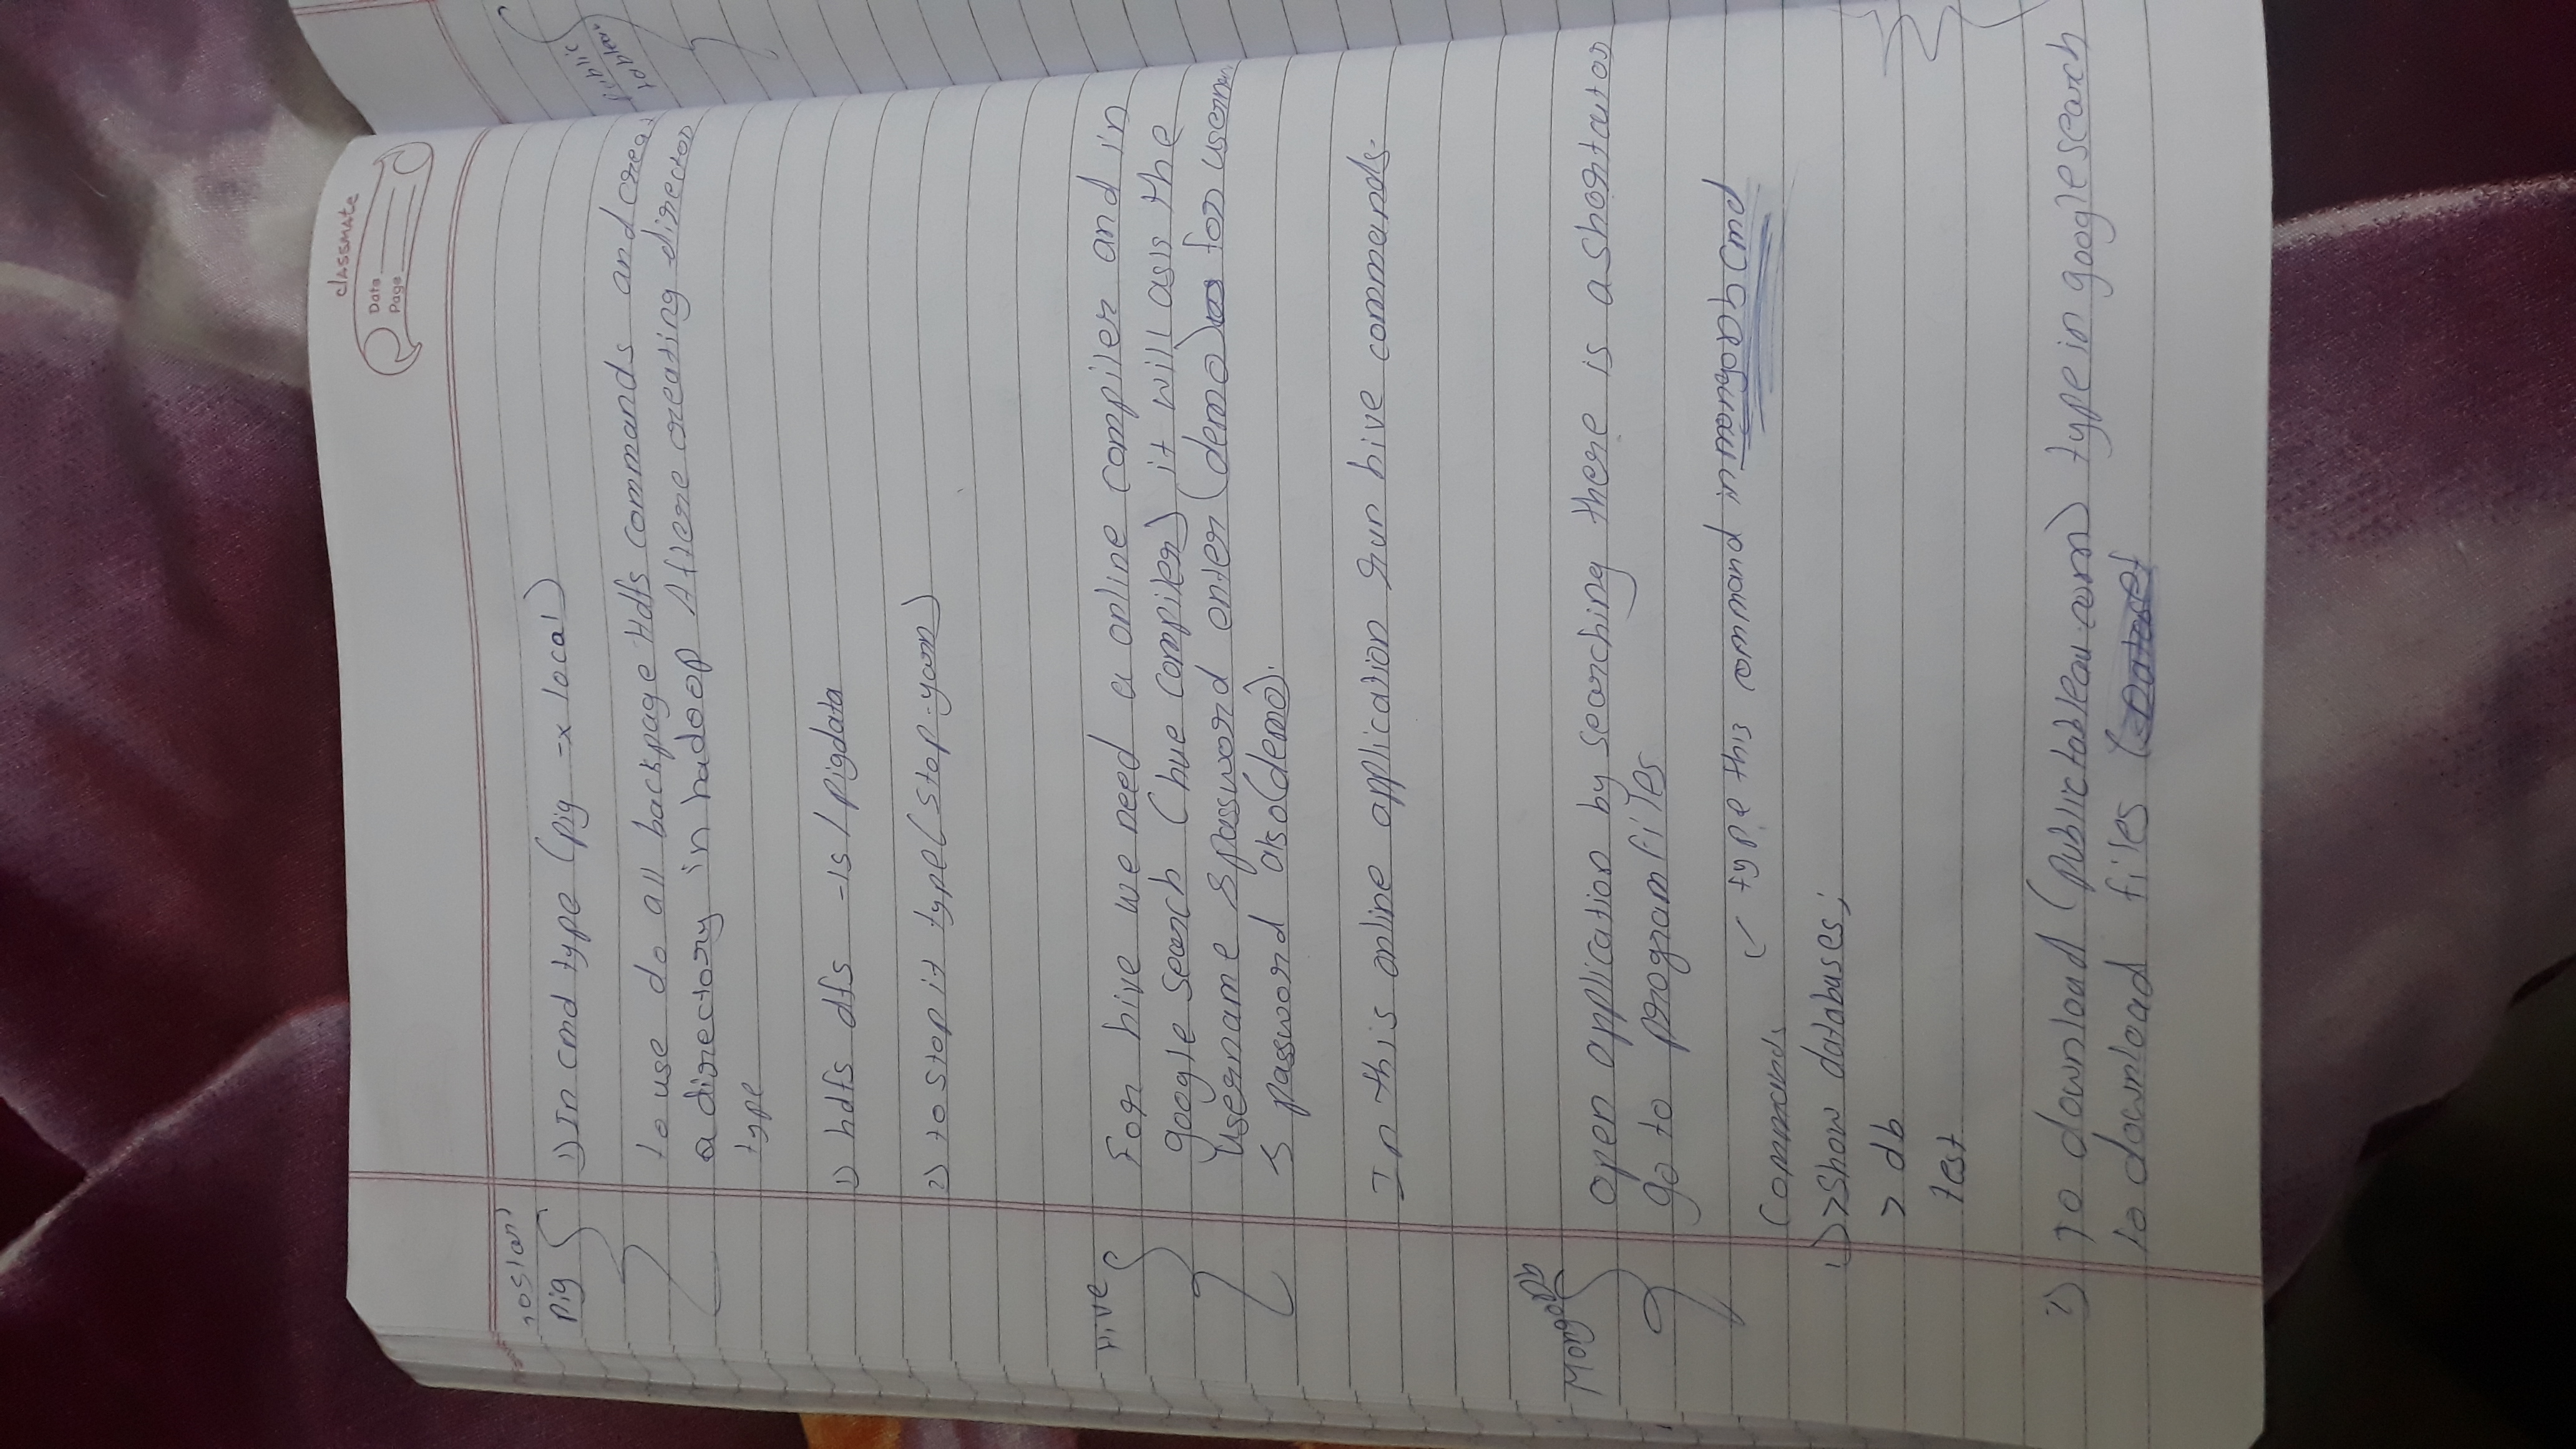 classmate
Date
Page
Pig
1) In cmd type (pig -x local)
to use do all backpage Hdfs commands and creat
a directory in hadoop After creating director
type
1) hdfs dfs -ls /pigdata
2) to stop it type (stop-yarn)
Hive
For hive we need a online compiler and in
google search (hue compiler) it will ask the
Username & password enter (demo) for usern
& password also (demo).
In this online application run hive commands.
MongoDB
open application by searching there is a shortar
go to program files
type this command in mongo cmd
Commands
1) >show databases;
> db
test
1) To download (publictableau.com) type in google search
to download files (dataset
public
tableau